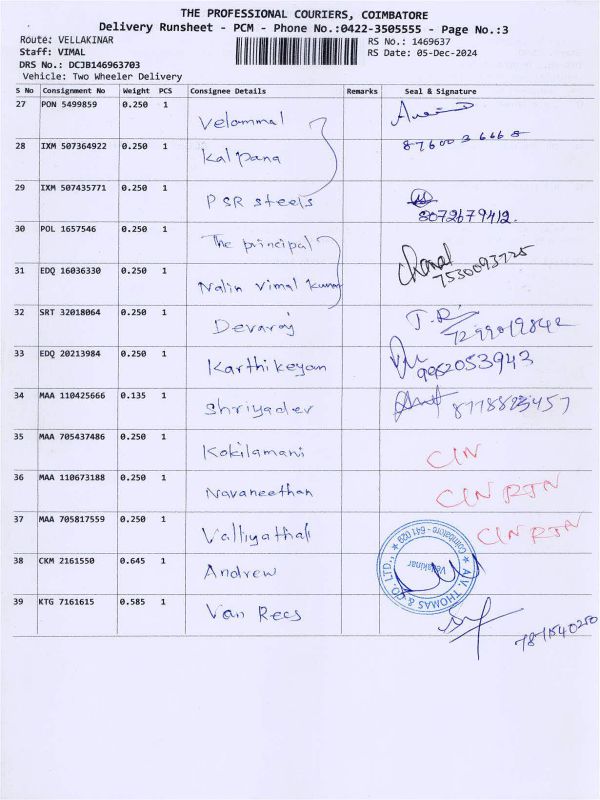 THE PROFESSIONAL COURIERS, COIMBATORE
Delivery Runsheet - PCM - Phone No.:0422-3505555 - Page No.:3
Route: VELLAKINAR
RS No.: 1469637
Staff: VIMAL
RS Date: 05-Dec-2024
DRS No.: DCJB146963703
Vehicle: Two Wheeler Delivery
S No Consignment No Weight PCS Consignee Details Remarks Seal & Signature
27 PON 5499859 0.250 1 Velammal
28 IXM 507364922 0.250 1 Kalpana 8760036668
29 IXM 507435771 0.250 1 PSR steels 8072679412.
30 POL 1657546 0.250 1 The principal
31 EDQ 16036330 0.250 1 Nalin Vimal Kumar 7530093725
32 SRT 32018064 0.250 1 Devaraj J.R. 7299019842
33 EDQ 20213984 0.250 1 Karthikeyan 9952053943
34 MAA 110425666 0.135 1 Shriyadev 8778823457
35 MAA 705437486 0.250 1 Kokilamani CIN
36 MAA 110673188 0.250 1 Navaneethan CIN RTN
37 MAA 705817559 0.250 1 Valliyathal CIN RTN
38 CKM 2161550 0.645 1 Andrew
A.V. THOMAS & CO. LTD.,
Vellakinar
Coimbatore - 641 029
39 KTG 7161615 0.585 1 Van Rees